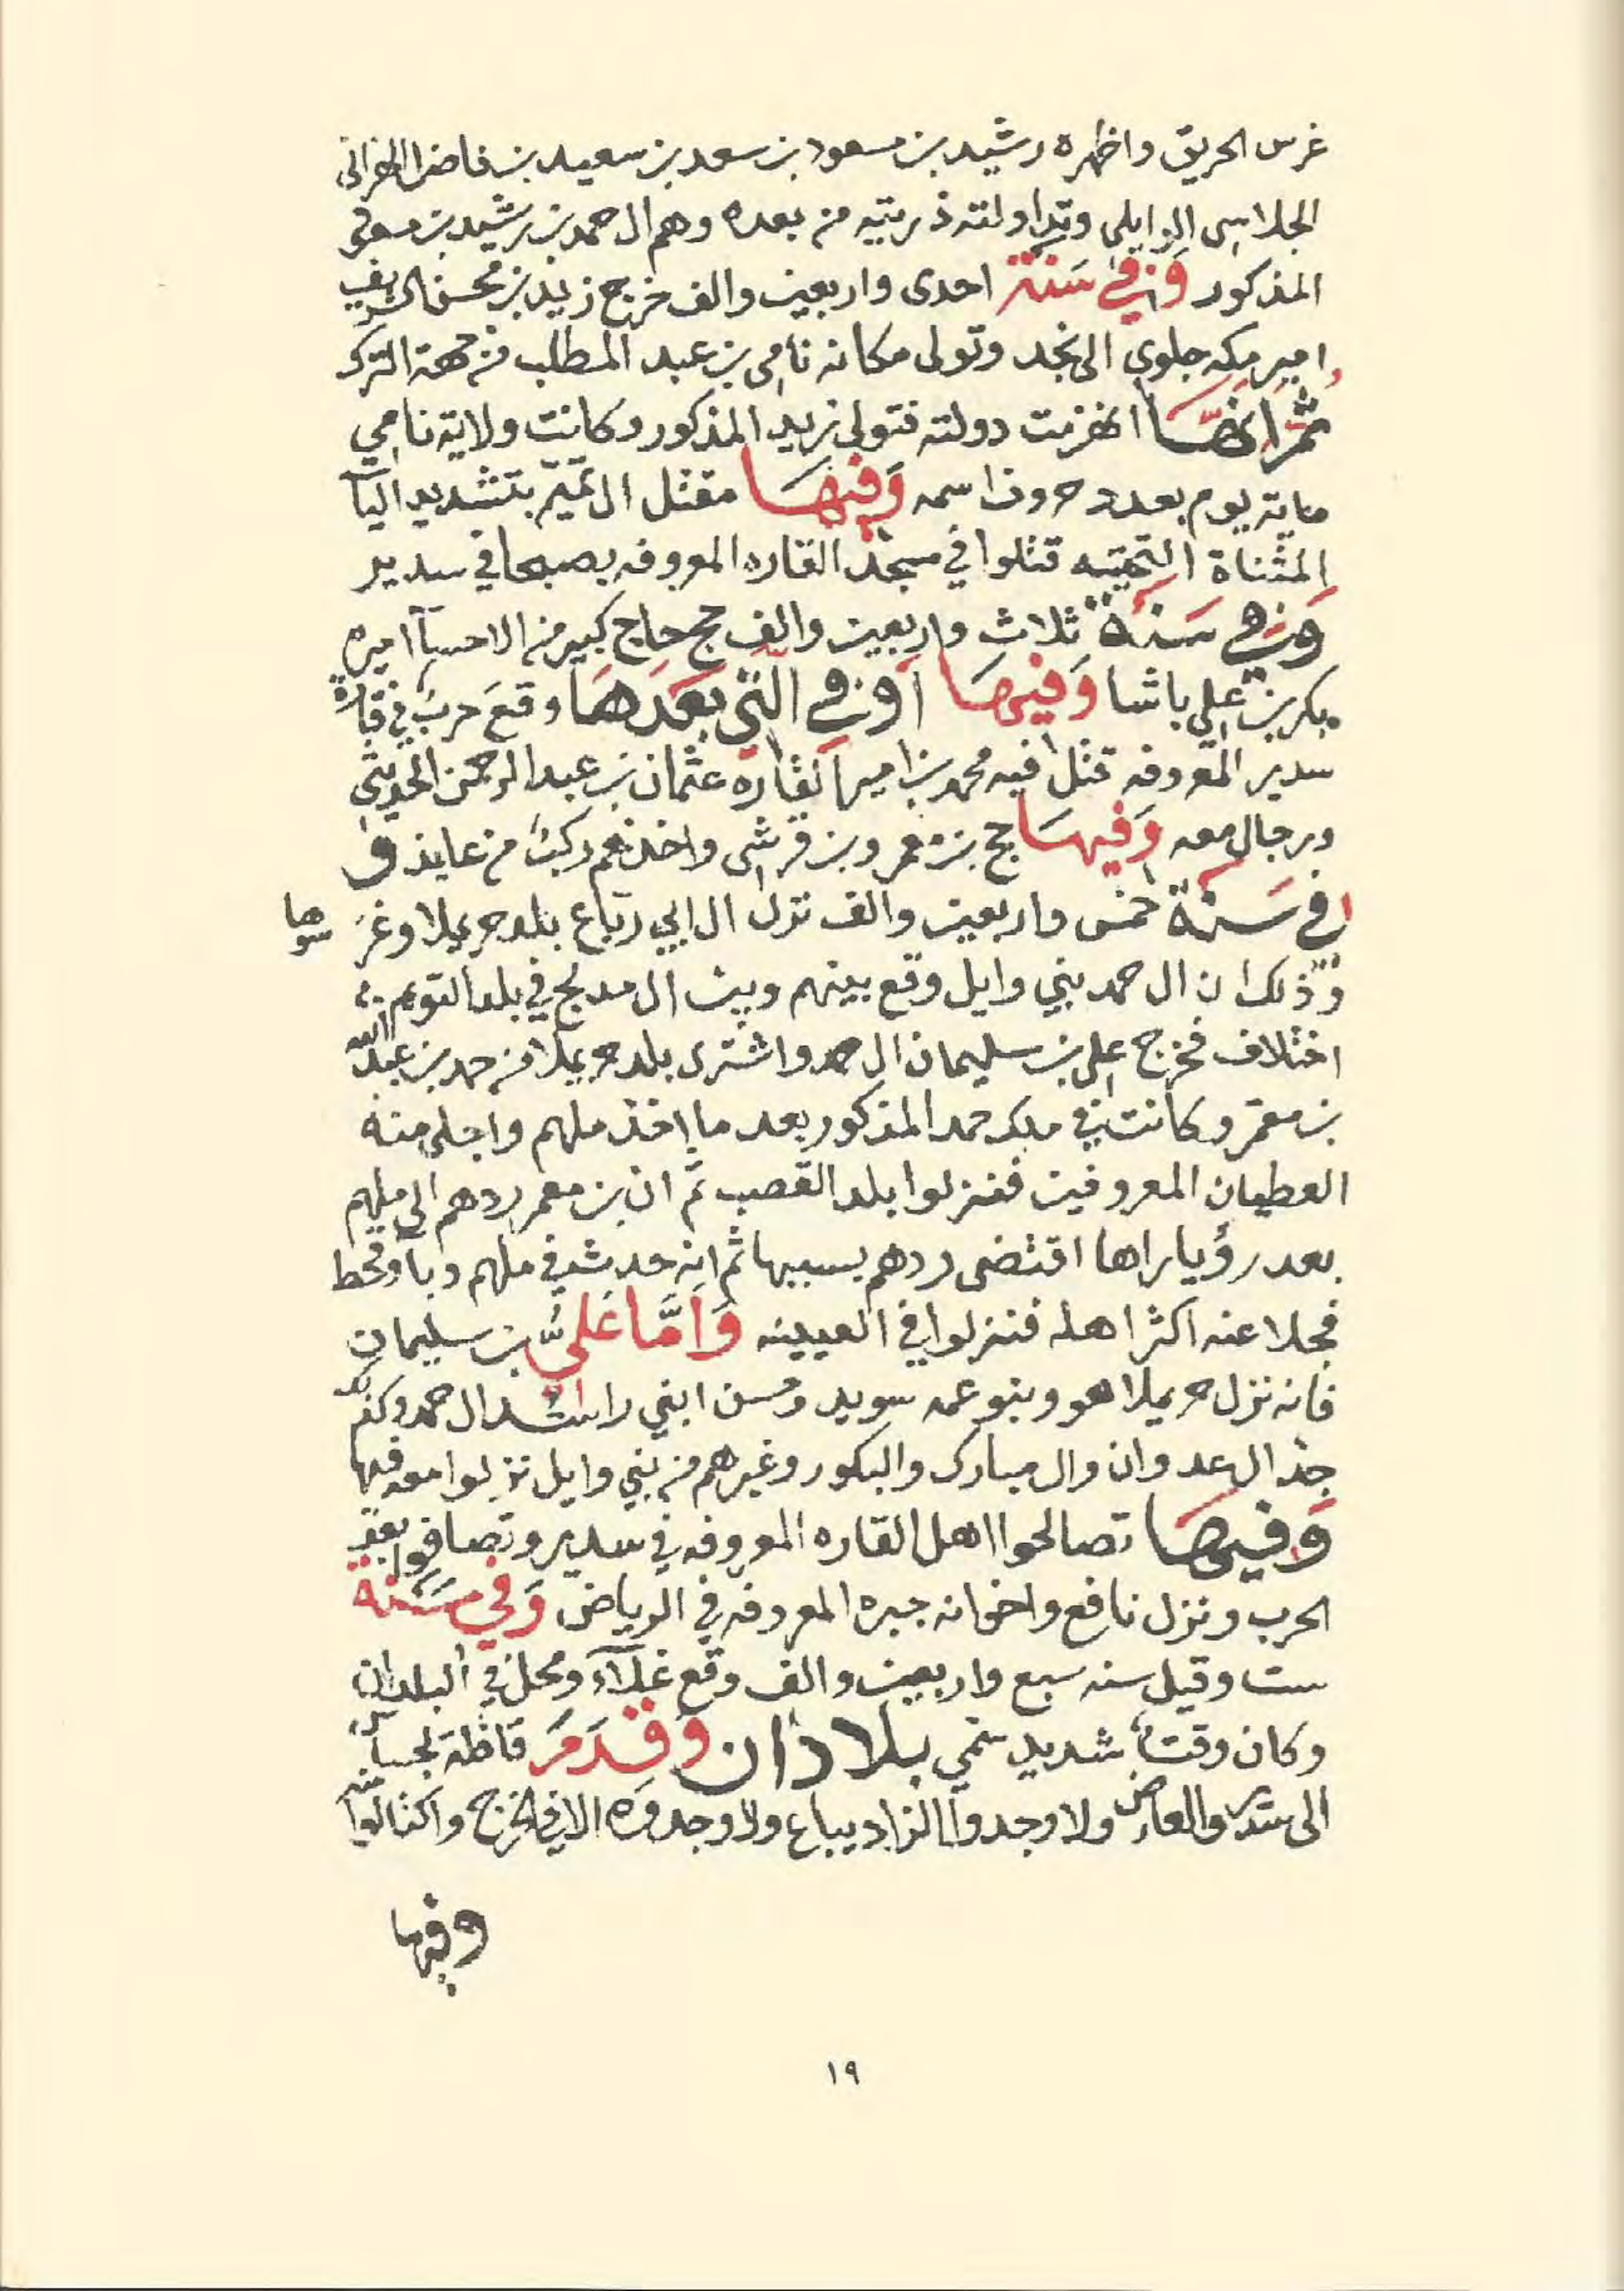 غرس الحريق واظهره رشيد بن مسعود بن سعد بن سعيد بن فاضل الهزاني
الجلاسي الوايلي وتداولته ذريته من بعده وهم ال حمد بن رشيد بن مسعود
المذكور وفي سنة احدى واربعين والف خرج زيد بن محسن الشريف
امير مكه جلوي الى نجد وتولى مكانه نامي بن عبد المطلب من جهة الترك
ثم انها انهزمت دولته فتولى زيد المذكور وكانت ولاية نامي
ماية يوم بعدد حروف اسمه وفيها مقتل ال تميّم بتشديد اليآ
المثناة التحتيه قتلوا في مسجد القاره المعروفه بصبحا في سدير
وفي سنة ثلاث واربعين والف حج حاج كبير من الاحسآ اميره
بكر بن علي باشا وفيها او في التي بعدها وقع حرب في قارة
سدير المعروفه قتل فيه محمد بن امير القاره عثمان بن عبد الرحمن الحديثي
ورجال معه وفيها حج بن معمر وبن قرشي واخذهم ركب من عايذ و
في سنة خمس واربعين والف نزل ال ابي ربّاع بلد حريملا وغرسوها
وذلك ان ال حمد بني وايل وقع بينهم وبين ال مدلج في بلد التويم
اختلاف فخرج علي بن سليمان ال حمد واشترى بلد حريملا من حمد بن عبد الله
بن معمر وكانت في ملك حمد المذكور بعد ما اخذ ملهم واجلى منه
العطيان المعروفين فنزلوا بلد القصب ثم ان بن معمر ردهم الى ملهم
بعد رؤيا راها اقتضى ردهم بسببها ثم انه حدث في ملهم وبآ وقحط
فجلا عنه اكثر اهله فنزلوا في العيينه وامّا عليّ بن سليمان
فانه نزل حريملا هو وبنو عمه سويد وحسن ابني راشد ال حمد وكذلك
جد ال عدوان وال مبارك والبكور وغيرهم من بني وايل نزلوا معه فيها
وفيها تصالحوا اهل القاره المعروفه في سدير وتصافوا بعد
الحرب ونزل نافع واخوانه جبره المعروفه في الرياض وفي سنة
ست وقيل سنه سبع واربعين والف وقع غلآء ومحل في البلدان
وكان وقتاً شديد سمي بلادان وقدم قافلة لحسا
الى سدير والعارض ولا وجدوا الزاد يباع ولا وجدوه الا في الخرج واكتالوا
وفيها
١٩